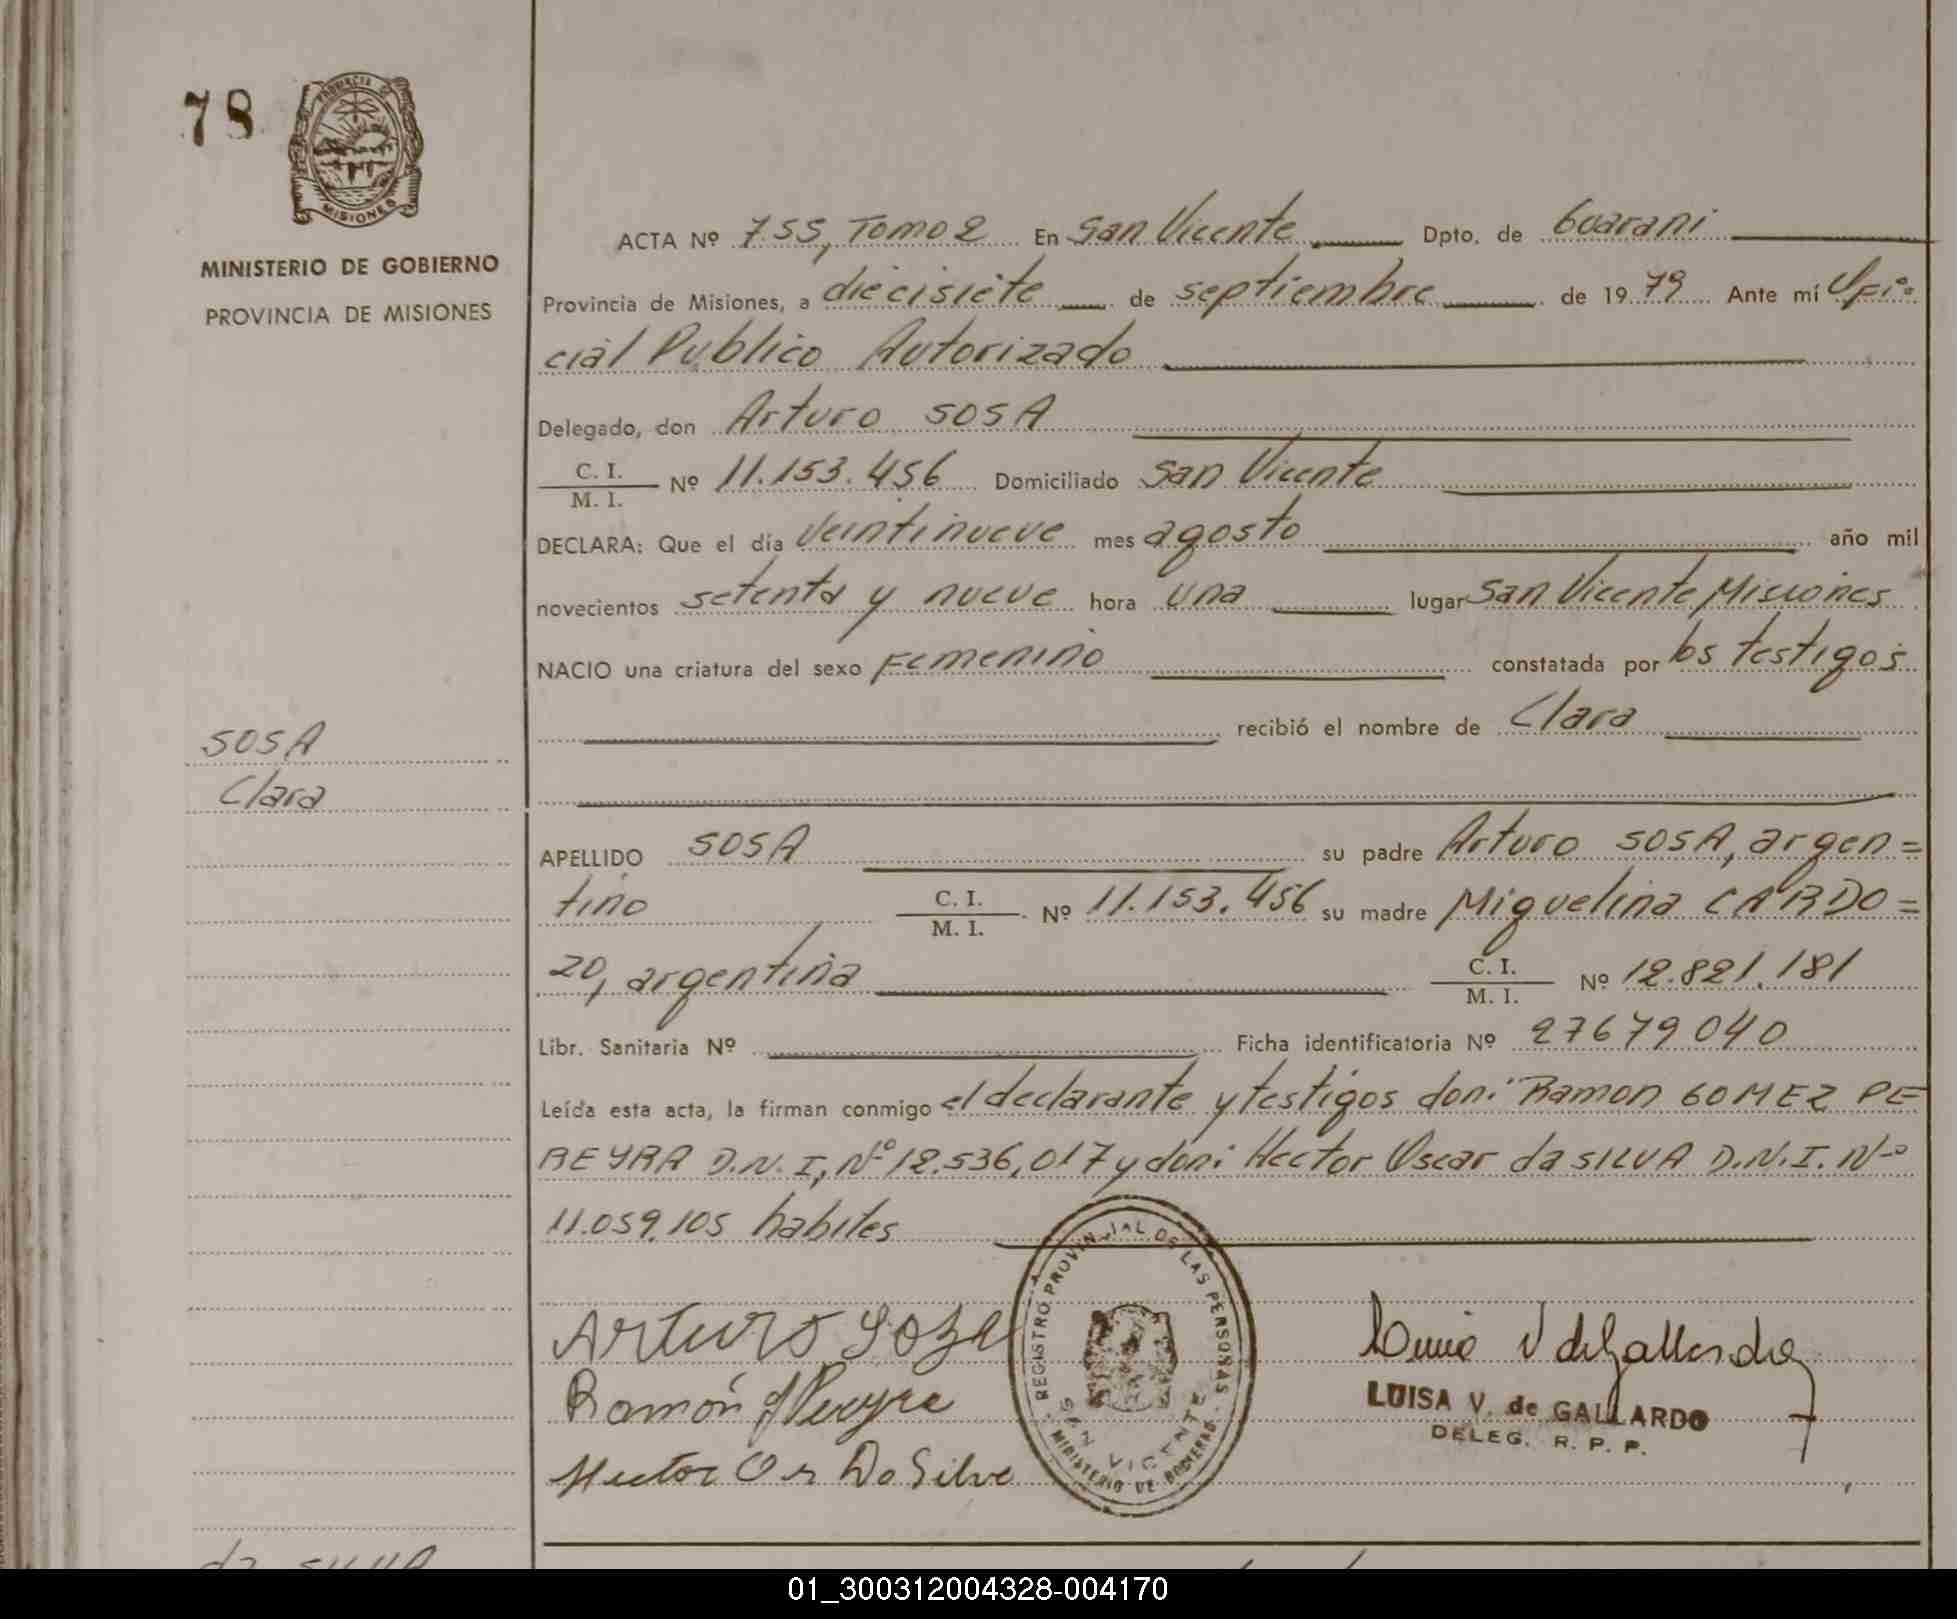 78
PROVINCIA DE
MISIONES
MINISTERIO DE GOBIERNO
PROVINCIA DE MISIONES
ACTA Nº 755, Tomo 2 En San Vicente Dpto. de Guarani
Provincia de Misiones, a diecisiete de septiembre de 1979 Ante mí Ofi=
cial Publico Autorizado
Delegado, don Arturo SOSA
C. I.
M. I. Nº 11.153.456 Domiciliado San Vicente
DECLARA: Que el día Veintinueve mes agosto año mil
novecientos setenta y nueve hora una lugar San Vicente Misiones
NACIO una criatura del sexo Femenino constatada por los testigos
recibió el nombre de Clara
SOSA
Clara
APELLIDO SOSA su padre Arturo SOSA, argen=
tino C. I. M. I. Nº 11.153.456 su madre Miguelina CARDO=
ZO, argentina C. I. M. I. Nº 12.821.181
Libr. Sanitaria Nº Ficha identificatoria Nº 27679040
Leída esta acta, la firman conmigo el declarante y testigos don: Ramon GOMEZ PE
REYRA D.N.I, Nº 12.536,017 y don: Hector Oscar da SILVA D.N.I. Nº
11.059.105 habiles
Arturo Soza
Ramón Pereyra
Hector Os Da Silva
REGISTRO PROVINCIAL DE LAS PERSONAS
SAN VICENTE
MINISTERIO DE GOBIERNO
Luisa V de Gallardo
LUISA V. de GALLARDO
DELEG. R. P. P.
da SILVA
01_300312004328-004170